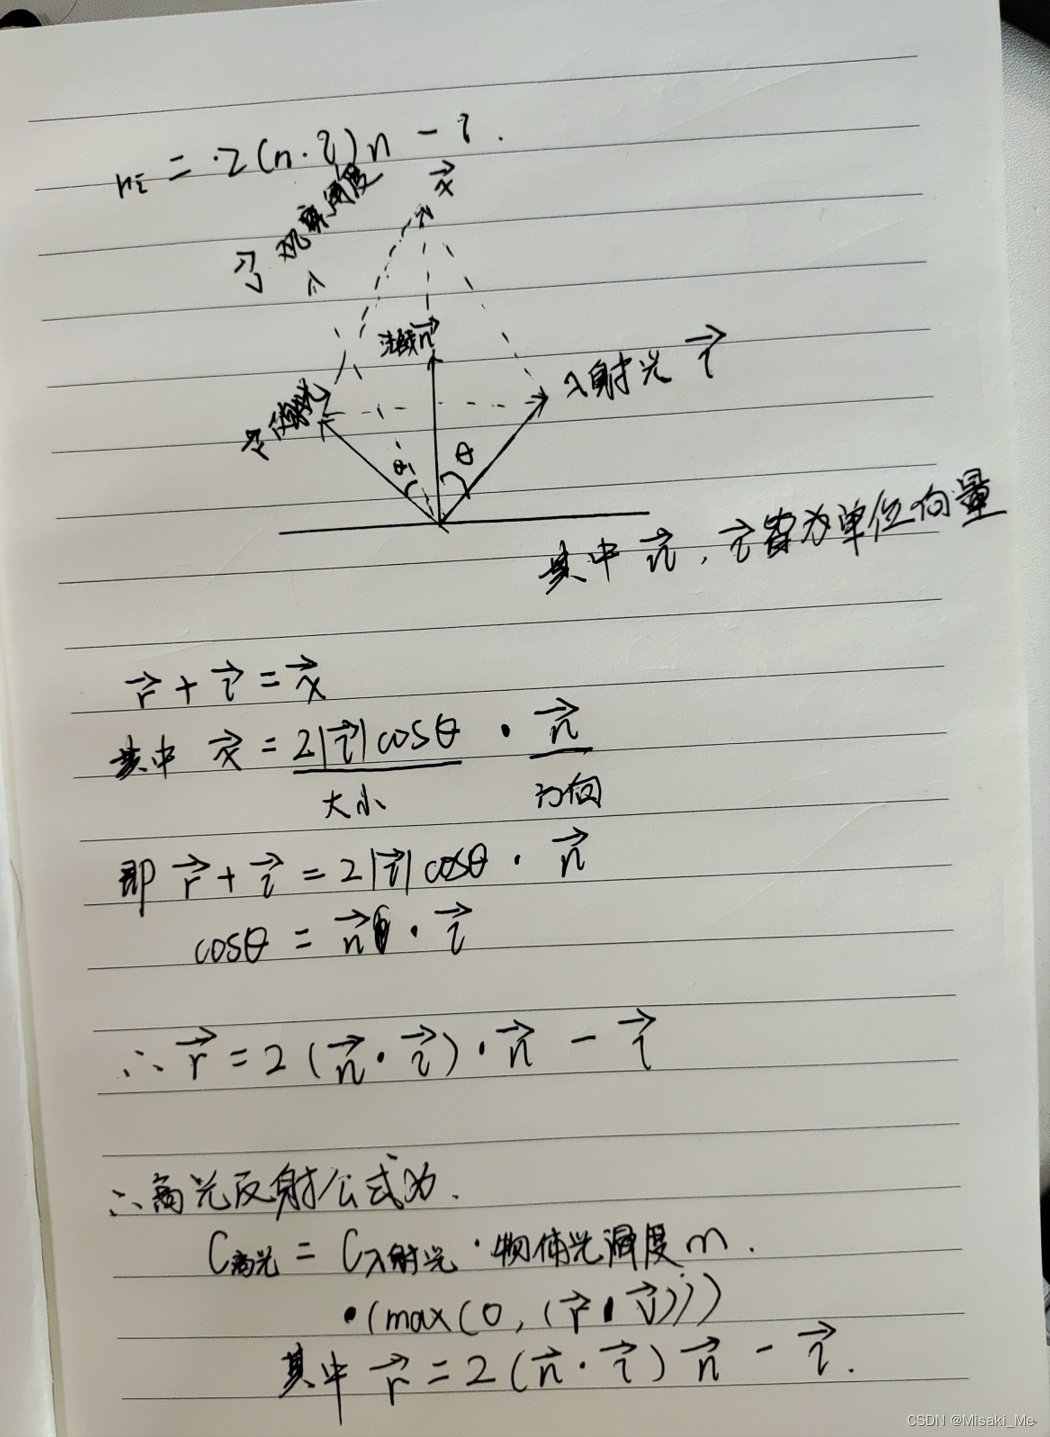 = 2(n·i)n - i.
x⃗
v⃗ 观察角度
法线n⃗
入射光 i⃗
r⃗ 反射光
θ₁ θ
其中 n⃗, i⃗皆为单位向量
r⃗ + i⃗ = x⃗
其中 x⃗ = 2|i⃗| cosθ · n⃗
大小 方向
即 r⃗ + i⃗ = 2|i⃗| cosθ · n⃗
cosθ = n⃗ · i⃗
∴ r⃗ = 2(n⃗·i⃗)·n⃗ - i⃗
∴高光反射公式为.
C高光 = C入射光 · 物体光泽度 m.
·(max(0, (r⃗·v⃗)))
其中 r⃗ = 2(n⃗·i⃗)n⃗ - i⃗.
CSDN @Misaki_Me